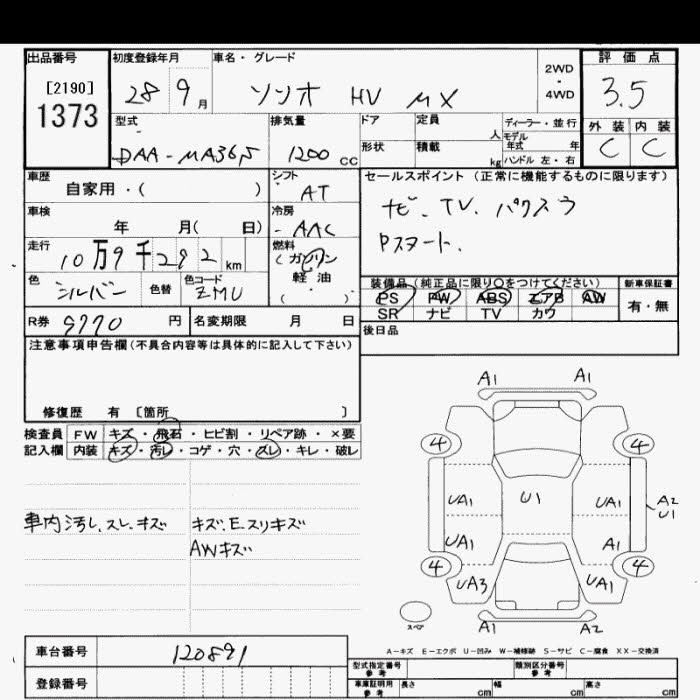 出品番号 初度登録年月 車名・グレード 評価点
[2190] 1373
28 9月 ソリオ HV MX 2WD・4WD 3.5
型式 排気量 ドア 定員 人 ディーラー・並行 外装 内装
モデル年式 年
DAA-MA36S 1200cc 形状 積載 kg ハンドル 左・右 C C
車歴 自家用・( ) シフト AT セールスポイント(正常に機能するものに限ります)
車検 年 月( 日) 冷房 AAC ナビ、TV、
走行 10万9千292km 燃料 (ガソリン・軽油・( ) Pスタート、
色 シルバー 色替 色コード ZMU
装備品(純正品に限り○をつけてください) 新車保証書
PS PW ABS エアB AW 有・無
SR ナビ TV カワ
R券 9770円 名変期限 月 日 後日品
注意事項申告欄(不具合内容等は具体的に記入して下さい)
修復歴 有 [箇所 ]
検査員 FW キズ・飛石・ヒビ割・リペア跡・×要
記入欄 内装 キズ・汚レ・コゲ・穴・スレ・キレ・破レ
車内汚レ、スレ、キズ キズ、Eスリキズ
AWキズ
A1 A1
4 4
UA1 U1 UA1 A2
U1
UA1 A1
4 4
UA3 UA1
スペア A1 A2
A-キズ E-エクボ U-凹み W-補修跡 S-サビ C-腐食 XX-交換済
車台番号 120891
登録番号
型式指定番号 参考 類別区分番号 参考
車庫証明用 参考 長さ cm 幅 cm 高さ cm